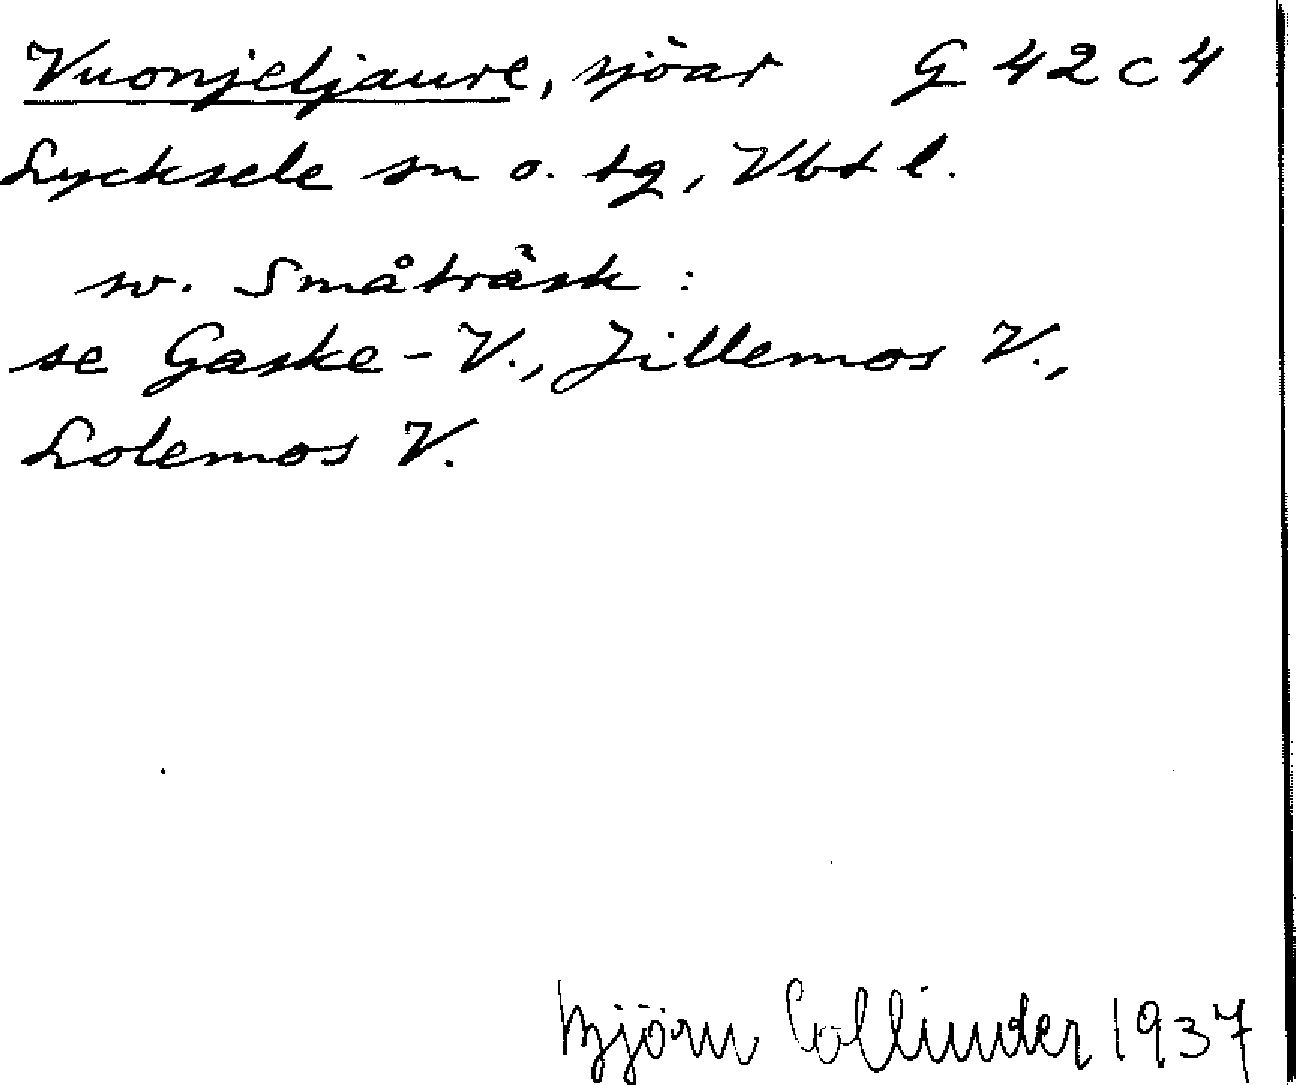 Vuonjeljaure, sjöar G 42 c 4
Lycksele sn o. tg, Vbtl.
sv. Småträsk:
se Gaske-V., Jillemos V.,
Lolemos V.
Björn Collinder 1937